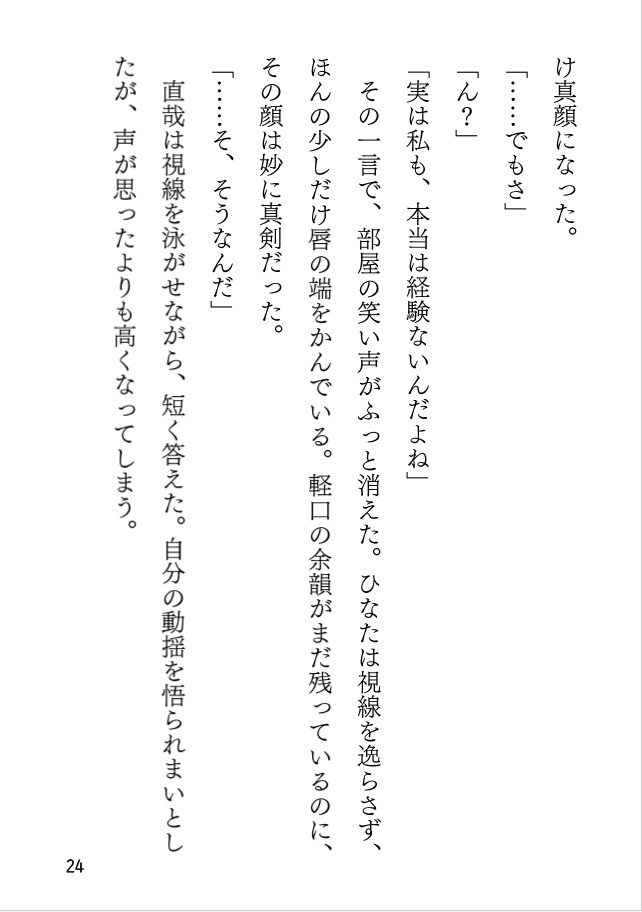 け真顔になった。
「……でもさ」
「ん？」
「実は私も、本当は経験ないんだよね」
その一言で、部屋の笑い声がふっと消えた。ひなたは視線を逸らさず、
ほんの少しだけ唇の端をかんでいる。軽口の余韻がまだ残っているのに、
その顔は妙に真剣だった。
「……そ、そうなんだ」
直哉は視線を泳がせながら、短く答えた。自分の動揺を悟られまいとし
たが、声が思ったよりも高くなってしまう。
24